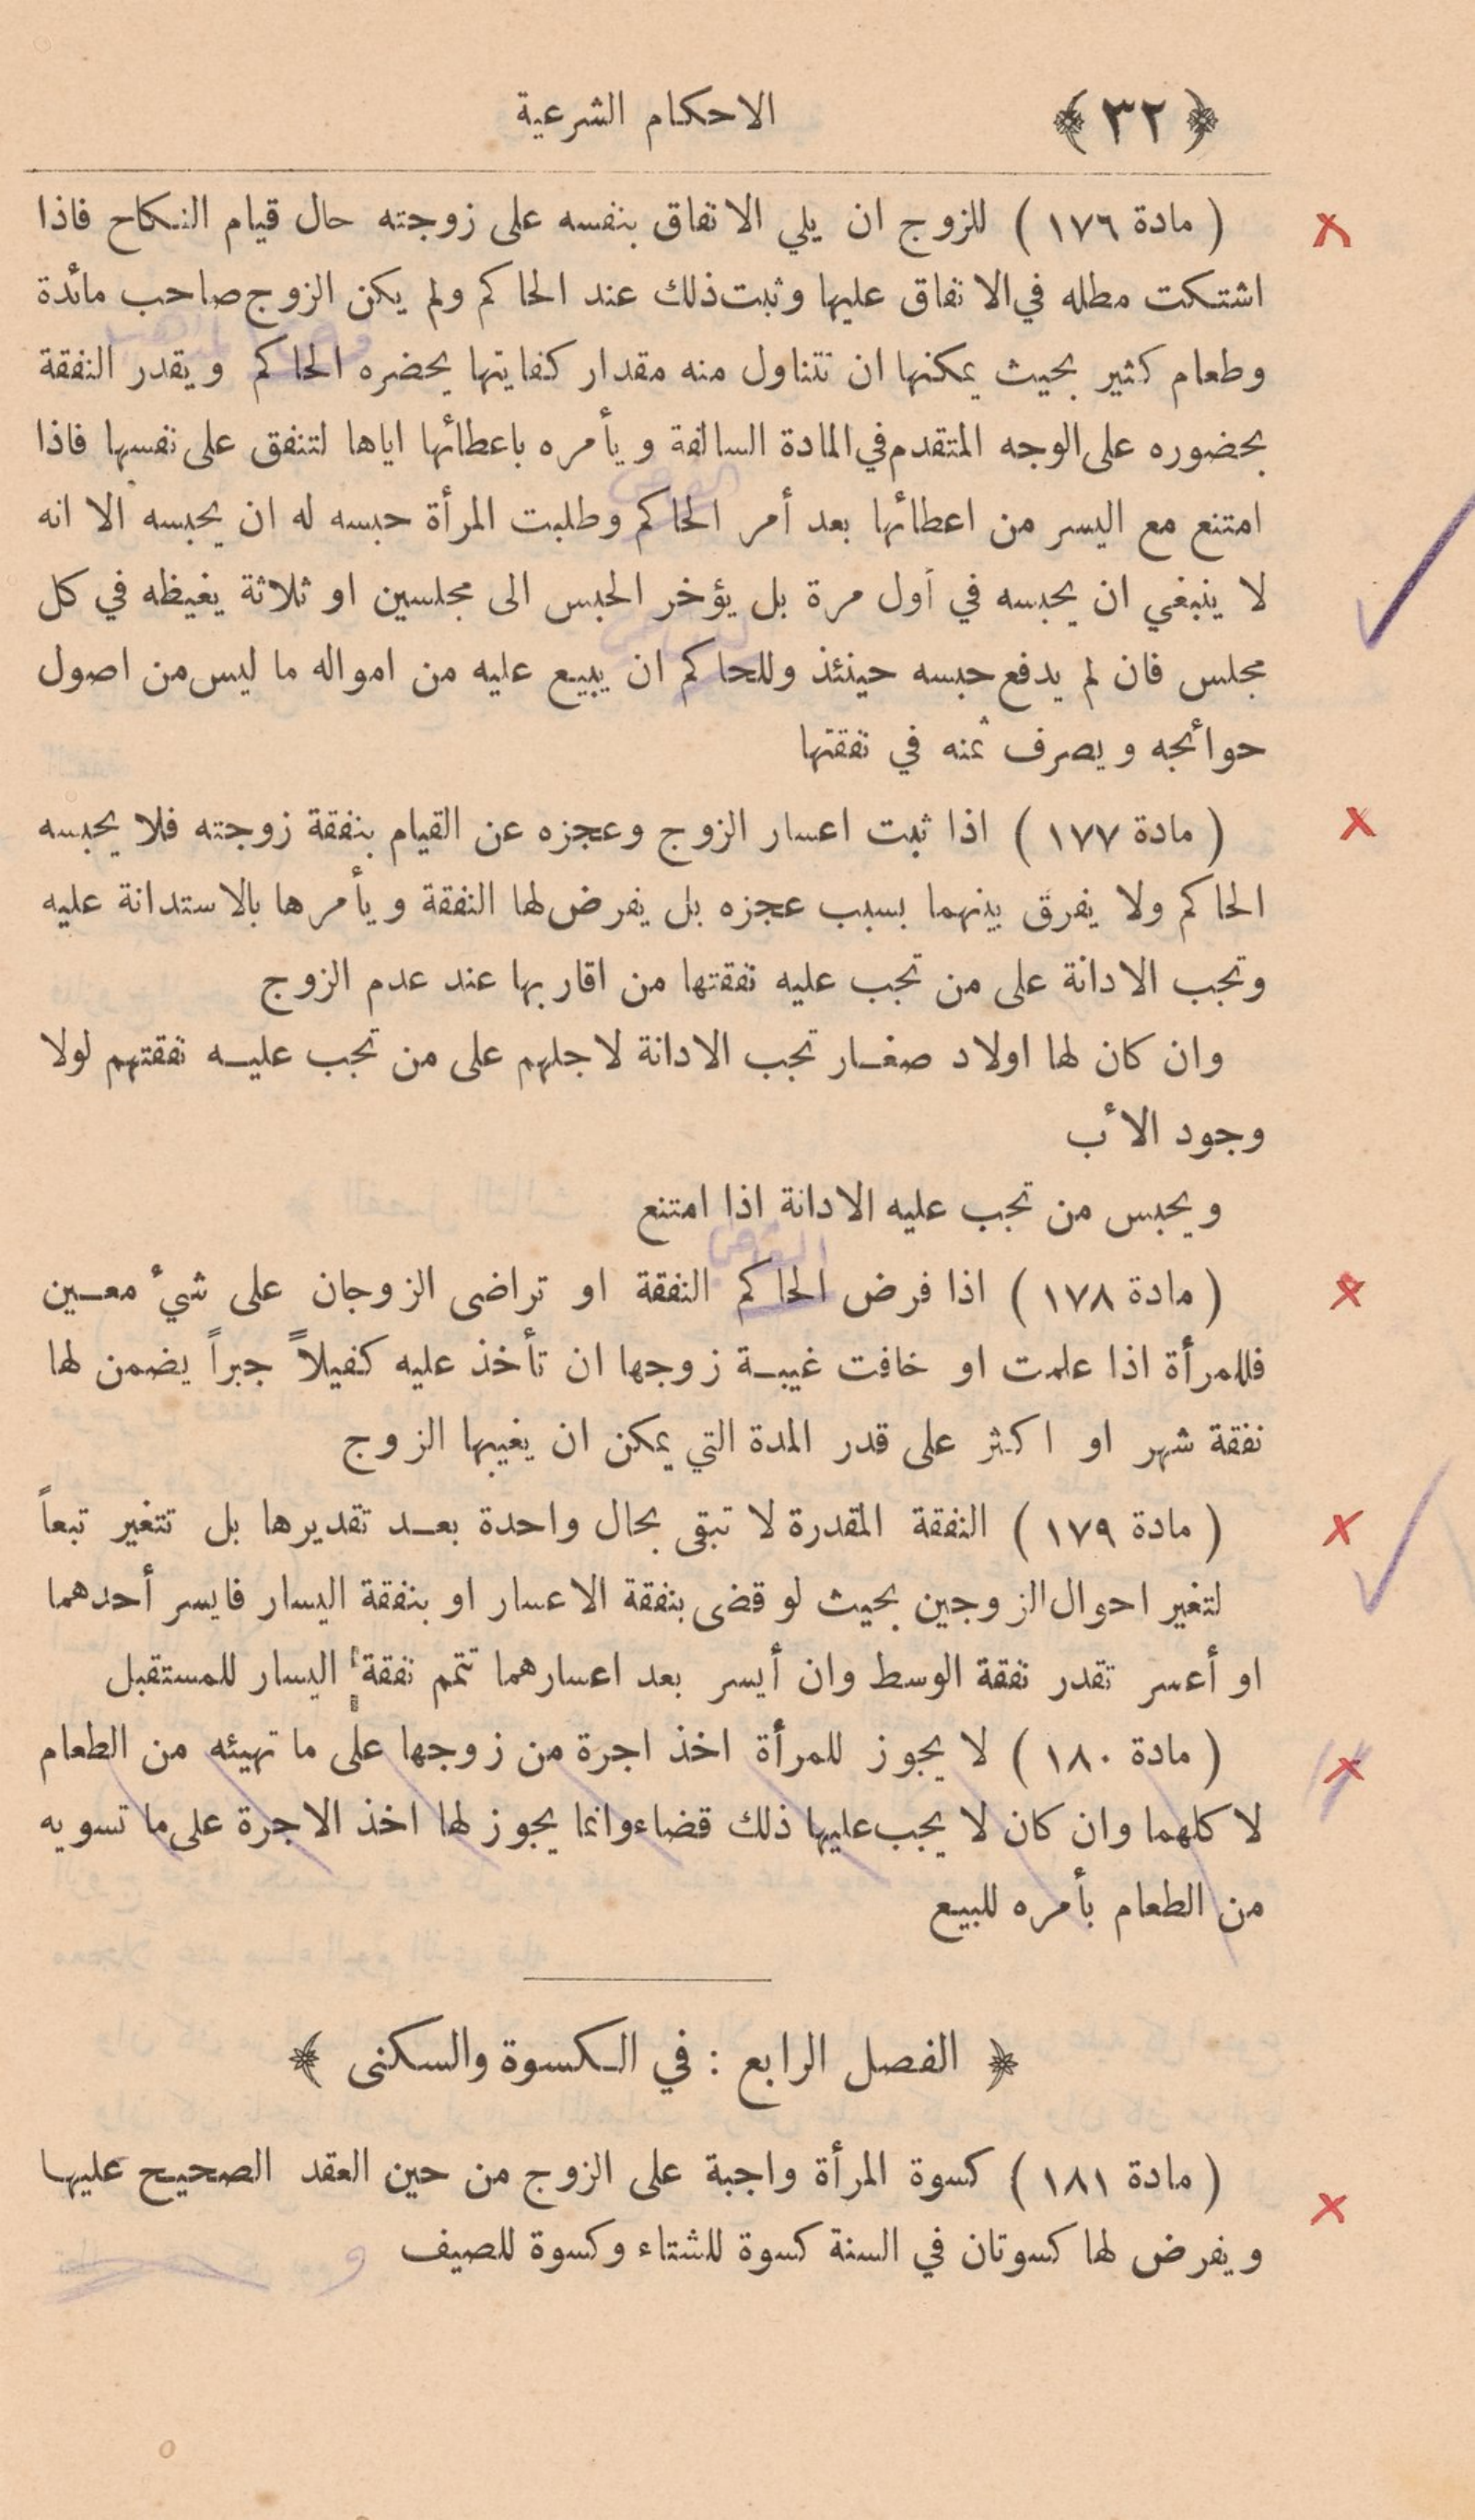 ﴿ ٣٢ ﴾ الاحكام الشرعية
( مادة ١٧٦ ) للزوج ان يلي الانفاق بنفسه على زوجته حال قيام النكاح فاذا
اشتكت مطله في الانفاق عليها وثبت ذلك عند الحاكم ولم يكن الزوج صاحب مائدة
وطعام كثير بحيث يمكنها ان تتناول منه مقدار كفايتها يحضره الحاكم ويقدر النفقة
بحضوره على الوجه المتقدم في المادة السالفة ويأمره باعطائها اياها لتنفق على نفسها فاذا
القاضي
امتنع مع اليسر من اعطائها بعد أمر الحاكم وطلبت المرأة حبسه له ان يحبسه الا انه
لا ينبغي ان يحبسه في أول مرة بل يؤخر الحبس الى مجلسين او ثلاثة يغيظه في كل
مجلس فان لم يدفع حبسه حينئذ وللحاكم ان يبيع عليه من امواله ما ليس من اصول
حوائجه ويصرف ثمنه في نفقتها
( مادة ١٧٧ ) اذا ثبت اعسار الزوج وعجزه عن القيام بنفقة زوجته فلا يحبسه
الحاكم ولا يفرق بينهما بسبب عجزه بل يفرض لها النفقة ويأمرها بالاستدانة عليه
وتجب الادانة على من تجب عليه نفقتها من اقاربها عند عدم الزوج
وان كان لها اولاد صغار تجب الادانة لاجلهم على من تجب عليه نفقتهم لولا
وجود الأب
ويحبس من تجب عليه الادانة اذا امتنع
القاضي
( مادة ١٧٨ ) اذا فرض الحاكم النفقة او تراضى الزوجان على شيء معين
فللمرأة اذا علمت او خافت غيبة زوجها ان تأخذ عليه كفيلاً جبراً يضمن لها
نفقة شهر او اكثر على قدر المدة التي يمكن ان يغيبها الزوج
( مادة ١٧٩ ) النفقة المقدرة لا تبقى بحال واحدة بعد تقديرها بل تتغير تبعاً
لتغير احوال الزوجين بحيث لو قضى بنفقة الاعسار او بنفقة اليسار فايسر أحدهما
او أعسر تقدر نفقة الوسط وان أيسر بعد اعسارهما تتمم نفقة اليسار للمستقبل
( مادة ١٨٠ ) لا يجوز للمرأة اخذ اجرة من زوجها على ما تهيئه من الطعام
لاكلهما وان كان لا يجب عليها ذلك قضاء وانما يجوز لها اخذ الاجرة على ما تسويه
من الطعام بأمره للبيع
﴿ الفصل الرابع : في الكسوة والسكنى ﴾
( مادة ١٨١ ) كسوة المرأة واجبة على الزوج من حين العقد الصحيح عليها
ويفرض لها كسوتان في السنة كسوة للشتاء وكسوة للصيف